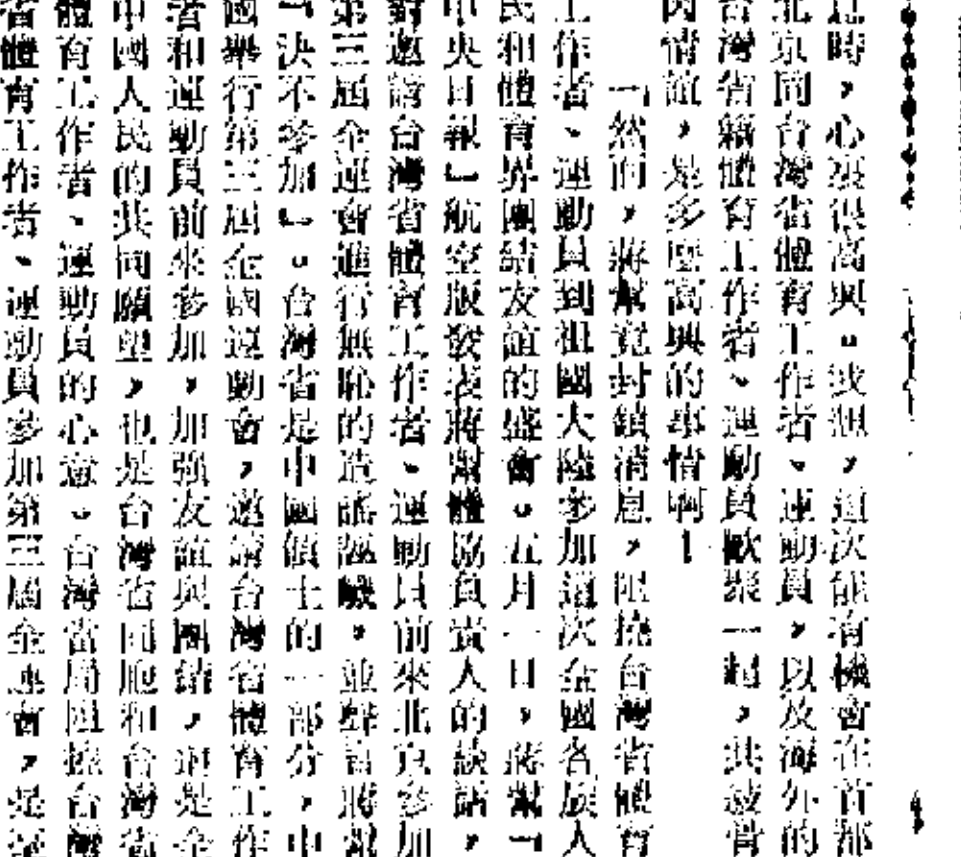 時，心裏很高興。我想，這次能有機會在首都
北京同台灣省體育工作者、運動員，以及海外的
台灣省籍體育工作者、運動員歡聚一起，共敍骨
肉情誼，是多麼高興的事情啊！
「然而，蔣幫竟封鎖消息，阻撓台灣省體育
工作者、運動員到祖國大陸參加這次全國各族人
民和體育界團結友誼的盛會。五月一日，蔣幫「
中央日報」航空版發表蔣幫體協負責人的談話，
對邀請台灣省體育工作者、運動員前來北京參加
第三屆全運會進行無恥的造謠誣衊，並聲言蔣幫
「決不參加」。台灣省是中國領土的一部分，中
國舉行第三屆全國運動會，邀請台灣省體育工作
者和運動員前來參加，加強友誼與團結，這是全
中國人民的共同願望，也是台灣省同胞和台灣省
體育工作者、運動員的心意。台灣當局阻撓台灣
省體育工作者、運動員參加第三屆全運會，是